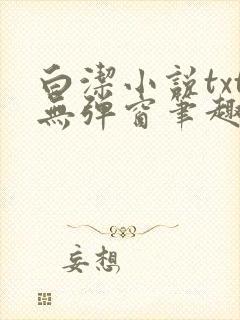 白潔小說txt
無彈窗筆趣
妄想